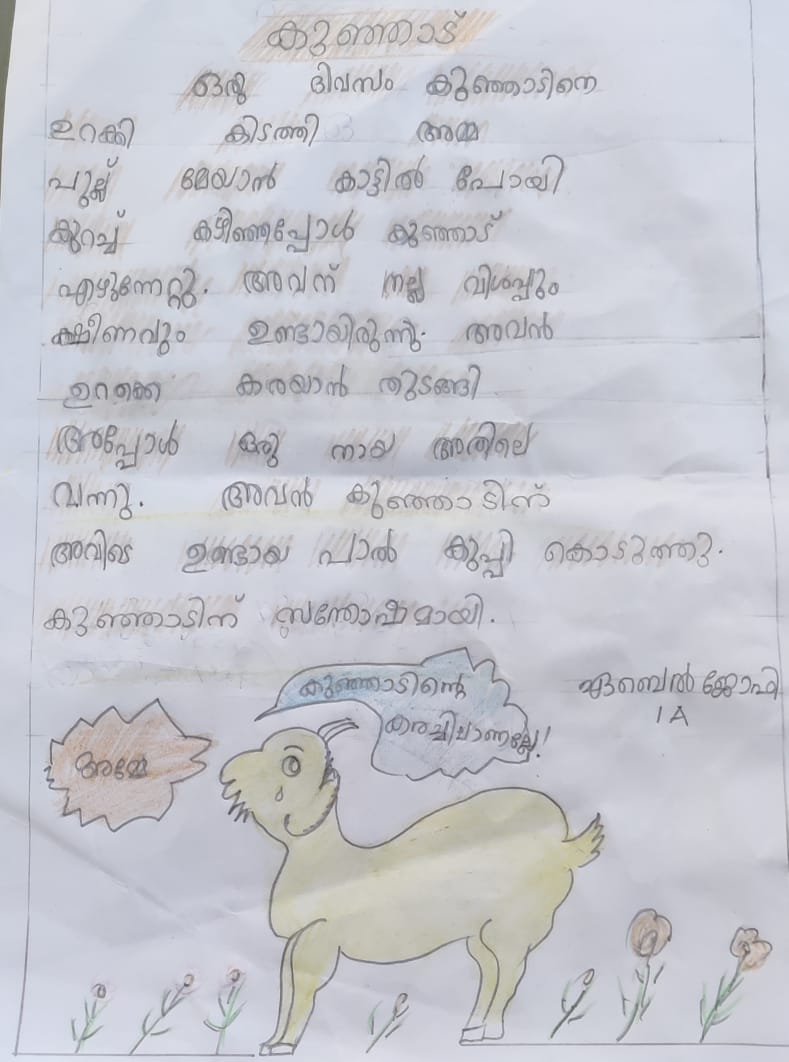 കുഞ്ഞാട്
ഒരു ദിവസം കുഞ്ഞാടിനെ
ഉറക്കി കിടത്തി അമ്മ
പുല്ല് മേയാൻ കാട്ടിൽ പോയി
കുറച്ച് കഴിഞ്ഞപ്പോൾ കുഞ്ഞാട്
എഴുന്നേറ്റു. അവന് നല്ല വിശപ്പും
ക്ഷീണവും ഉണ്ടായിരുന്നു. അവൻ
ഉറക്കെ കരയാൻ തുടങ്ങി
അപ്പോൾ ഒരു നായ അതിലെ
വന്നു. അവൻ കുഞ്ഞാടിന്
അവിടെ ഉണ്ടായ പാൽ കുപ്പി കൊടുത്തു.
കുഞ്ഞാടിന് സന്തോഷമായി.
ഏബെൽ ജോഫി
1 A
കുഞ്ഞാടിന്റെ
കരച്ചിലാണല്ലേ!
അമ്മേ